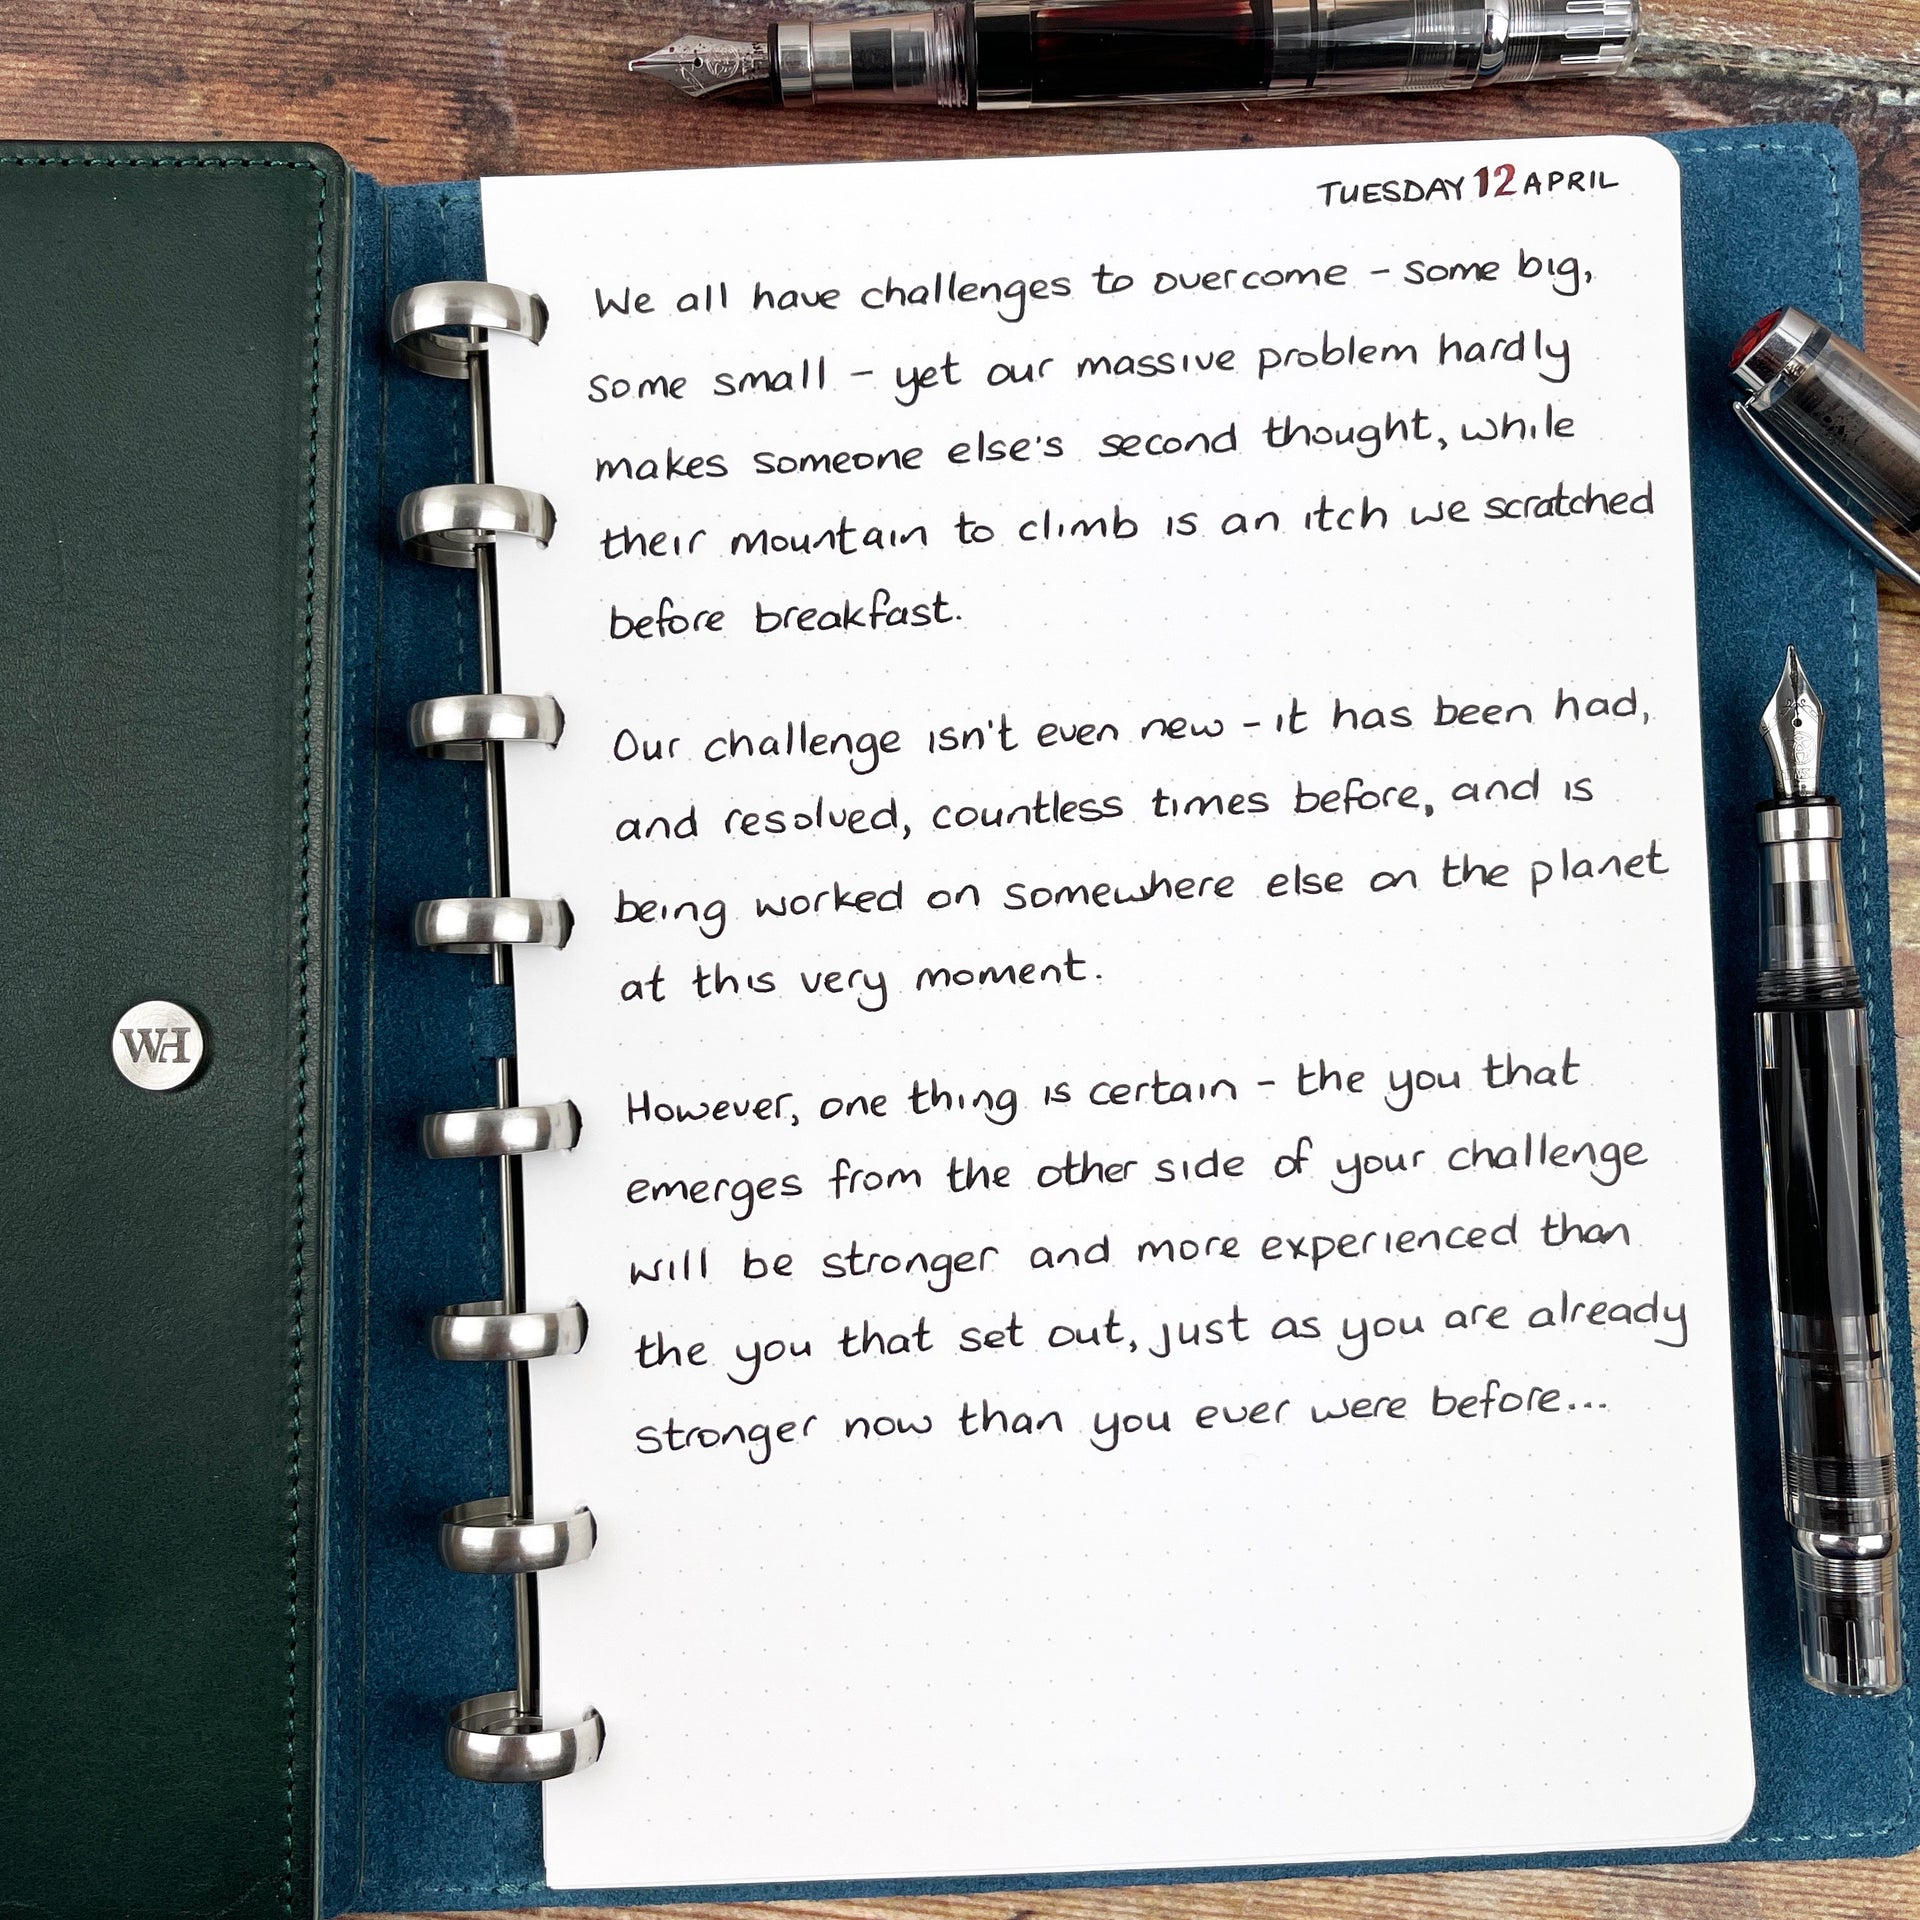 TUESDAY 12 APRIL
We all have challenges to overcome - some big,
some small - yet our massive problem hardly
makes someone else's second thought, while
their mountain to climb is an itch we scratched
before breakfast.
Our challenge isn't even new - it has been had,
and resolved, countless times before, and is
being worked on somewhere else on the planet
at this very moment.
However, one thing is certain - the you that
emerges from the other side of your challenge
will be stronger and more experienced than
the you that set out, just as you are already
stronger now than you ever were before...
WH